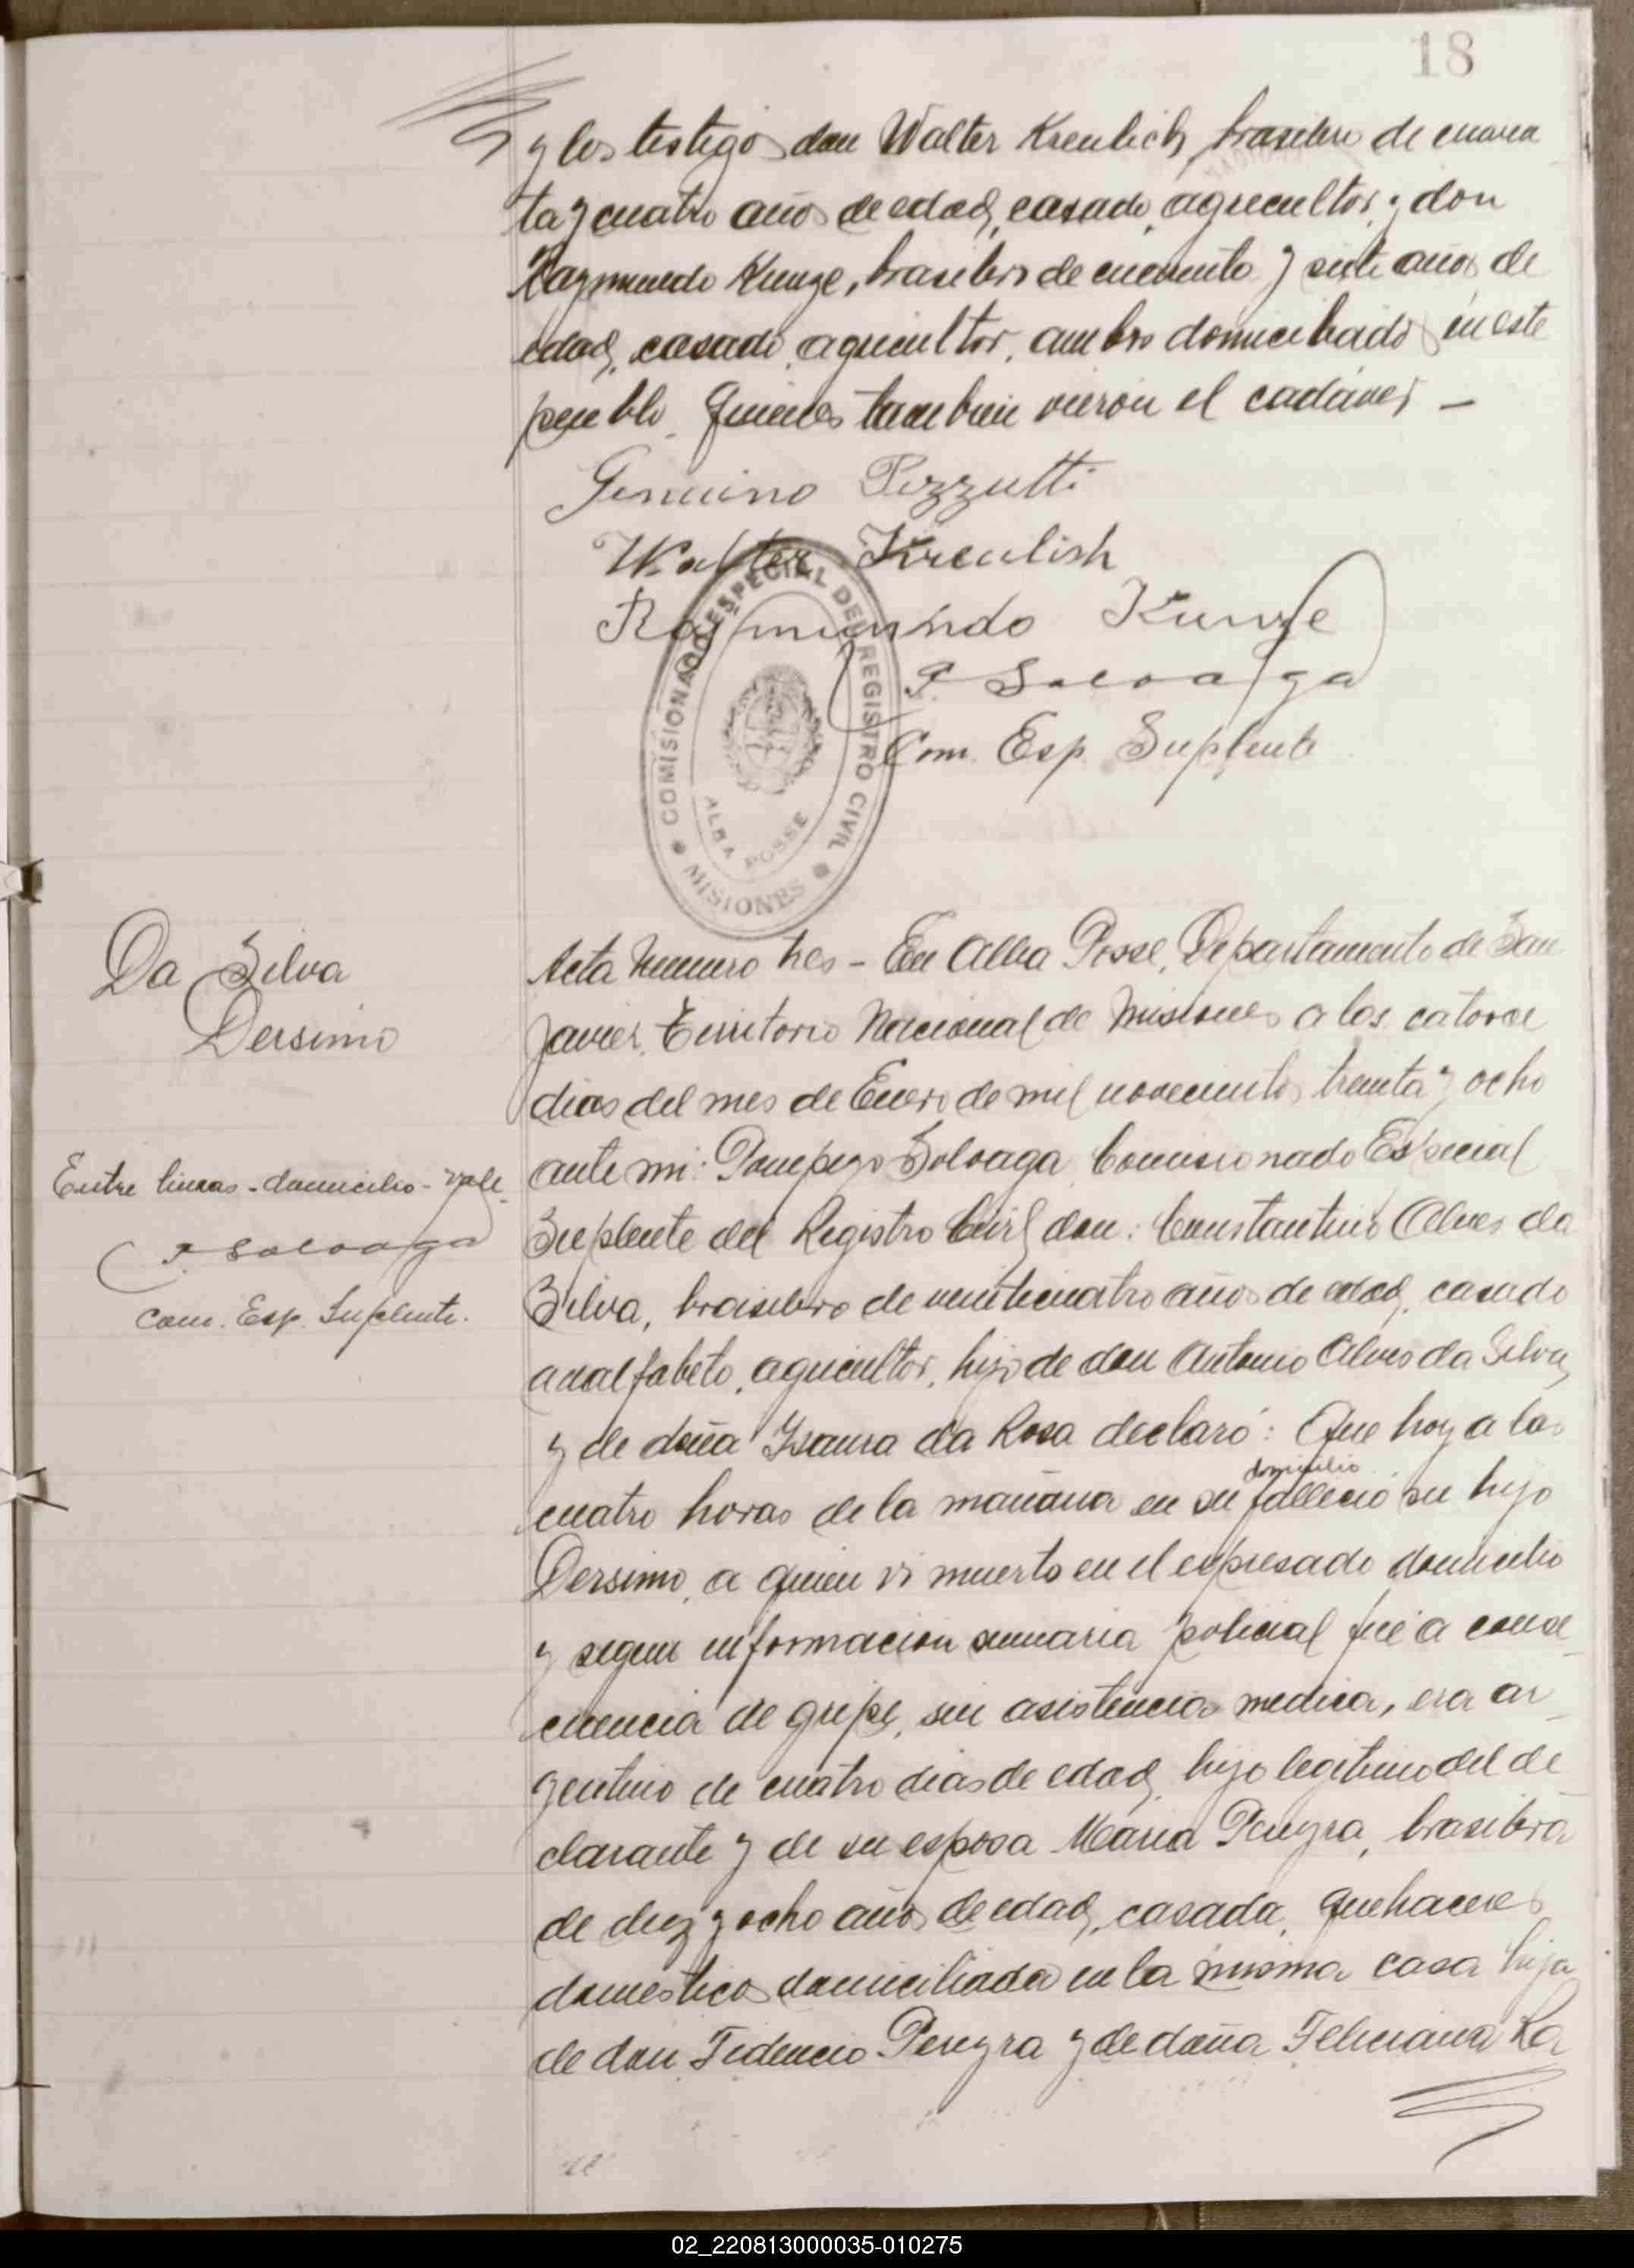 18
y los testigos don Walter Kreulich, brasilero de cuaren
ta y cuatro años de edad, casado, agricultor, y don
Raymundo Kunze, brasilero de cincuenta y siete años de
edad, casado, agricultor, ambos domiciliados en este
pueblo. Quienes tambien vieron el cadáver —
Genuino Pezzutti
Walter Kreulish
Raymundo Kunze
P. Soloaga
Com. Esp. Suplente
COMISIONADO ESPECIAL DEL REGISTRO CIVIL
ALBA POSSE
MISIONES
Da Silva
Dersimo
Entre lineas - domicilio - vale.
P. Soloaga
Com. Esp. Suplente.
Acta Numero tres - En Alba Posse, Departamento de San
Javier, Territorio Nacional de Misiones a los catorce
dias del mes de Enero de mil novecientos treinta y ocho
ante mi: Pompeyo Soloaga, Comisionado Especial
Suplente del Registro Civil, don: Constantino Alves da
Silva, brasilero de veinticuatro años de edad, casado
analfabeto, agricultor, hijo de don Antonio Alves da Silva,
y de doña Ysaura da Rosa declaró: Que hoy a las
domicilio
cuatro horas de la mañana en su falleció su hijo
Dersimo, a quien vi muerto en el expresado domicilio
y segun informacion sumaria policial fué a conse
cuencia de gripe, sin asistencia medica, era ar
gentino de cuatro dias de edad, hijo legitimo del de
clarante y de su esposa Maria Pereyra, brasilera
de diez y ocho años de edad, casada, quehaceres
domesticos domiciliada en la misma casa hija
de don Fidencio Pereyra y de doña Feliciana Ro
02_220813000035-010275